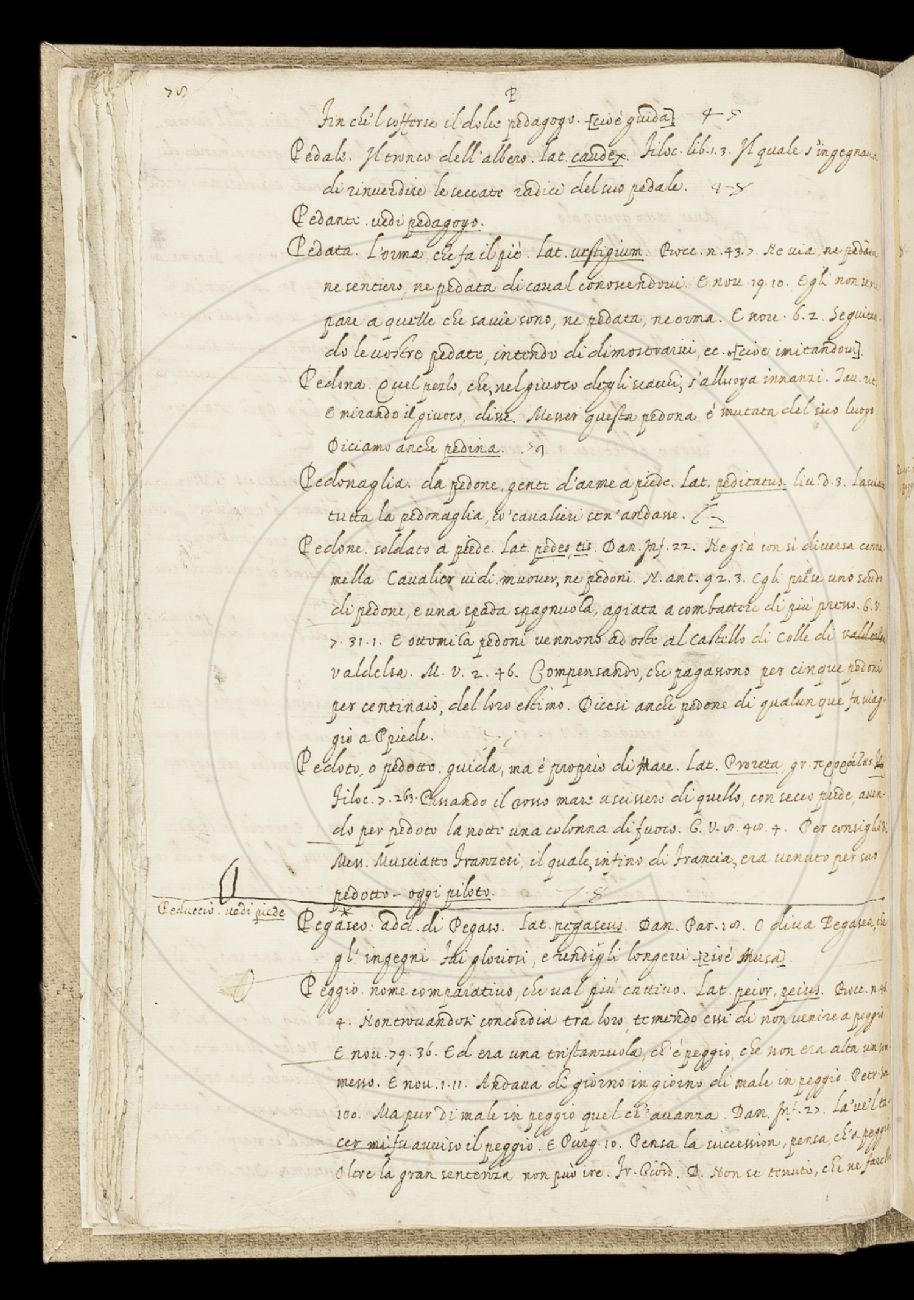 P
Fin che'l sofferse il dolce pedagogo. [cioè guida]
Pedale. Il tronco dell'albero. Lat. caudex. Filoc. lib. 1. 3. Il quale s'ingegnava
di rinverdire le seccate radici del suo pedale.
Pedante. vedi pedagogo.
Pedata. L'orma, che fa il piè. Lat. vestigium. Bocc. n. 43. 7. Ne via, ne
ne sentiero, ne pedata di caval conoscendovi. E nov. 19. 10. Egli non
pare a quelle che savie sono, ne pedata, ne orma. E nov. 6. 2. Seguitan
do le vostre pedate, intendo di dimostrarvi, ec. [cioè imitandovi].
Pedona. Quel pezzo, che, nel givoco degli scacchi, s'alluoga innanzi. Tav. rit.
E mirando il givoco, disse. Messer questa pedona è mutata del suo luogo
Diciamo anche pedina.
Pedonaglia. da pedone, gente d'arme a piede. Lat. peditatus. Liv. D. 3.
tutta la pedonaglia, co' cavalieri sen'andasse.
Pedone. soldato a piede. Lat. pedes, tis. Dan. Inf. 22. Ne già con sì diversa cenna
mella Cavalier vidi muover, ne pedoni. N. ant. 92. 3. Egli prese uno scudo
di pedone, e una spada spagnuola, agiata a combattere di più presso. G. V.
7. 31. 1. E ottomila pedoni vennono ad oste al castello di Colle di
valdelsa. M. V. 2. 46. Compensando, che pagassono per cinque pedoni
per centinaio, del loro estimo. Dicesi anche pedone di qualunque fa viag-
gio a Piede.
Pedoto, o pedotto. guida, ma è proprio di Mare. Lat. Proreta, gr.
Filoc. 7. 263. Passando il rosso mare uscissero di quello, con secco piede, aven-
do per pedoto la notte una colonna di fuoco. G. V. 8. 48. 4. Per consiglio di
Mess. Musciatto Franzesi, il quale, infino di Francia, era venuto per suo
pedotto - oggi piloto.
Peduccio. vedi piede
Pegaseo. add. di Pegaso. Lat. pegaseus. Dan. Par. 18. O diva Pegasea, che
gl'ingegni Fai gloriosi, e rendigli longevi [cioè Musa]
Peggio. nome comparativo, che val più cattivo. Lat. peior, peius. Bocc. n. 41
4. Non trovandosi concordia tra loro, temendo essi di non venire a peggio
E nov. 79. 36. Ed era una tristanzuola, ch'è peggio, che non era alta un som
messo. E nov. 1. 11. Andava di giorno in giorno di male in peggio. Petr. son
100. Ma pur di male in peggio quel ch'avanza. Dan. Inf. 27. La've'l ta
cer mi fu avviso il peggio. E Purg. 10. Pensa la succession, pensa, ch'a peggio
Oltre la gran sentenza non può ire. Fr. Giord. D. Non se tenuto, che ne